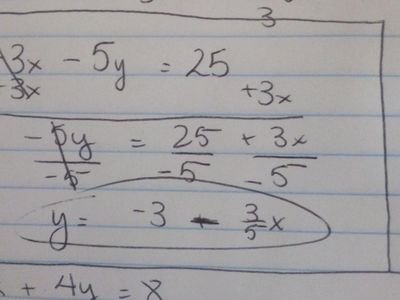 3
-3x - 5y = 25
+3x +3x
-5y = 25 + 3x
-5 -5 -5
y = -3 - 3/5x
+ 4y = 8